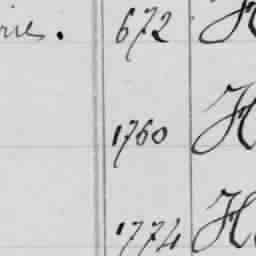 672 H
1760 H
1774 H